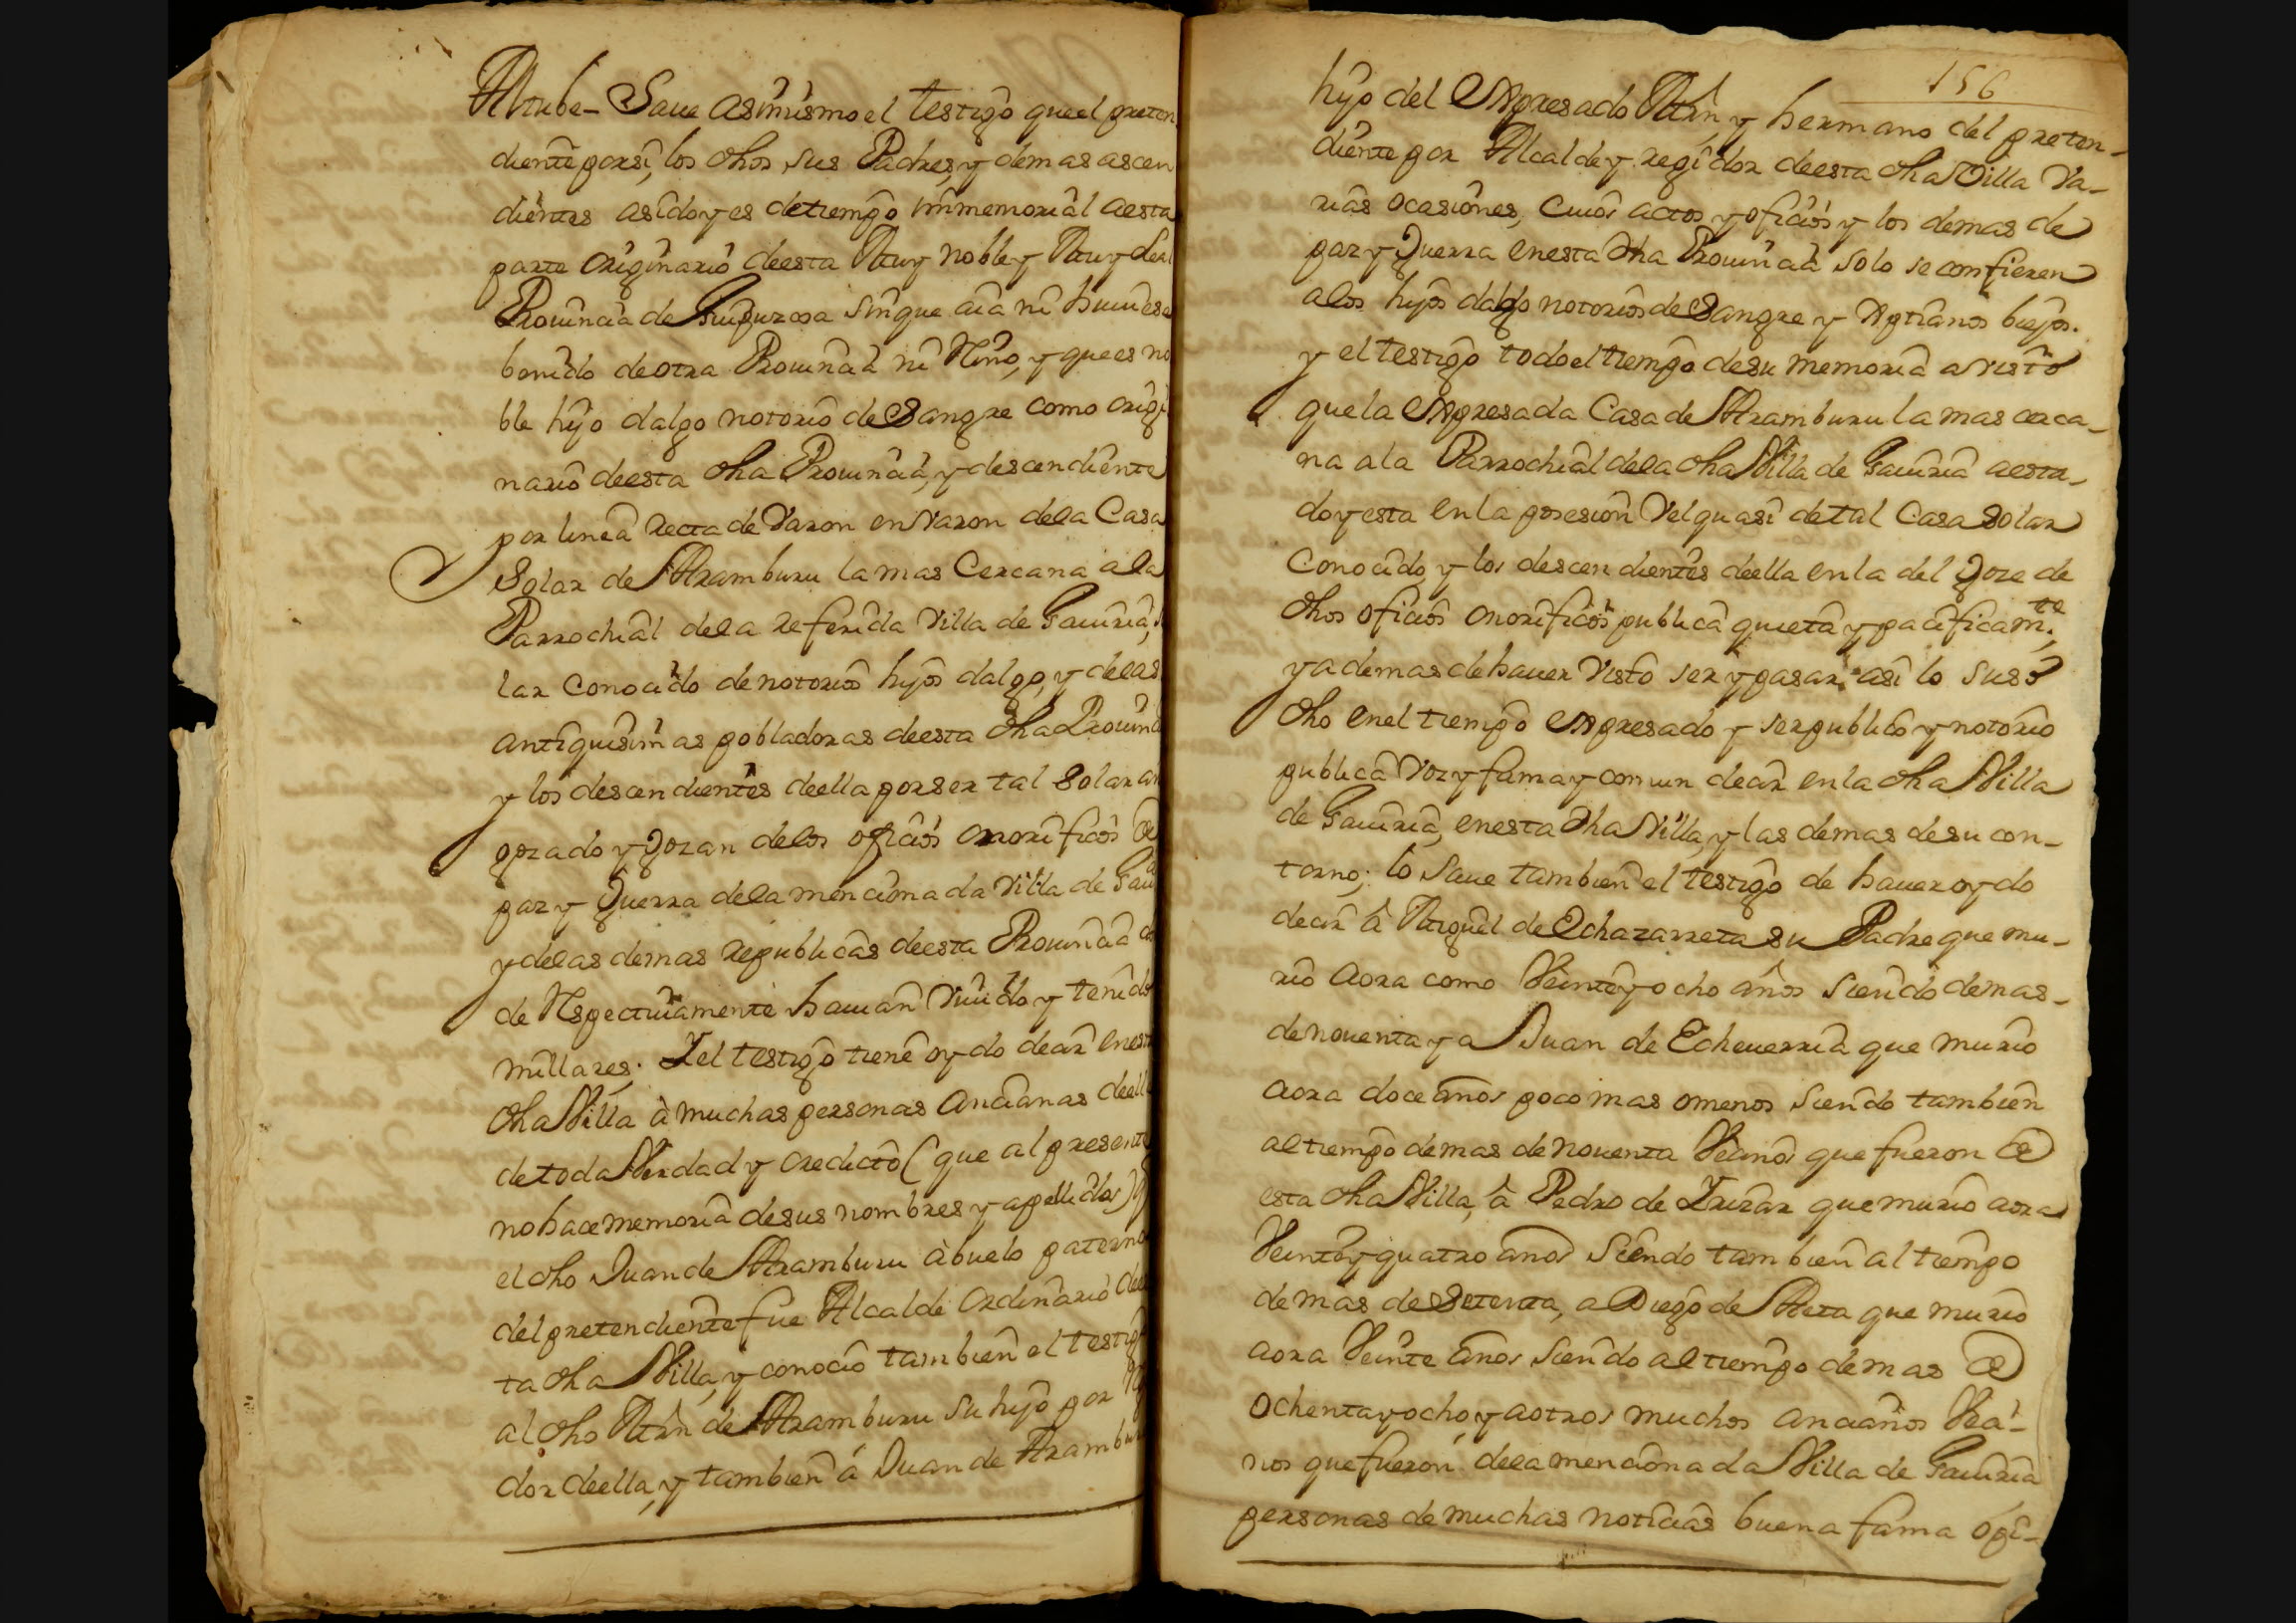 Altube - Saue asimismo el testigo que el preten
diente por si, los dhos sus Padres, y demas ascen
dientes a sido y es de tiempo immemorial a esta
parte originario de esta Muy noble y Muy Leal
Prouincia de Guipuzcoa sin que aia ni huuiese
benido de otra Prouincia ni Reino, y que es no
ble hijo dalgo notorio de Sangre como origi
nario de esta dha Prouincia, y descendiente
por linea recta de Varon en Varon de la Casa
Solar de Aramburu la mas Cercana a la
Parrochial de la referida Villa de Gauiria,
lar Conocido de notorios hijos dalgo, y de las
antiquisimas pobladoras de esta dha Prouin
y los descendientes de ella por ser tal Solar an
gozado y gozan de los oficios onorificos de
paz y Guerra de la mencionada Villa de Gaui
y de las demas republicas de esta Prouincia do
de Respectiuamente hauian Viuido y tenido
millares. Y el testigo tiene oydo decir en esta
dha Villa à muchas personas Ancianas de ella
de toda Verdad y credicto (que al presente
no hace memoria de sus nombres y apellidos) q
el dho Juan de Aramburu àbuelo paterno
del pretendiente fue Alcalde Ordinario de es
ta dha Villa, y conocio tambien el testigo
al dho Mrn de Aramburu su hijo por Re
dor de ella, y tambien à Juan de Arambur
156
hijo del Expresado Mrn, y hermano del preten-
diente por Alcalde y regidor de esta dha Villa Va-
rias ocasiones, Cuios actos y oficios y los demas de
paz y Guerra en esta dha Prouincia solo se confieren
a los hijos dalgo notorios de Sangre y Xptianos biejos.
y el testigo todo el tiempo de su memoria a visto
que la Expresada Casa de Aramburu la mas cerca-
na a la Parrochial de la dha Villa de Gauiria a esta-
do y esta en la posesion Vel quasi de tal Casa Solar
Conocido, y los descendientes de ella en la del Goze de
dhos oficios onorificos publica quieta y pacificamte.
y ademas de hauer Visto ser y pasar asi lo suso
dho en el tiempo expresado y ser publico y notorio
publica Voz y fama y comun decir en la dha Villa
de Gauiria, en esta dha Villa, y las demas de su con-
torno; lo saue tambien el testigo de hauer oydo
decir à Miguel de Echazarreta su Padre que mu-
rio aora como Veinte y ocho años siendo de mas-
de nouenta y a Juan de Echeuerria que murio
aora doce años poco mas o menos siendo tambien
al tiempo de mas de nouenta Vecinos que fueron de
esta dha Villa, à Pedro de Yrizar que murio aora
Veinte y quatro años siendo tambien al tiempo
de mas de Setenta, a Diego de Areta que murio
aora Veinte años siendo al tiempo de mas de
ochenta y ocho, y a otros muchos ancianos Veci-
nos que fueron de la mencionada Villa de Gauiria
personas de muchas noticias buena fama opi-